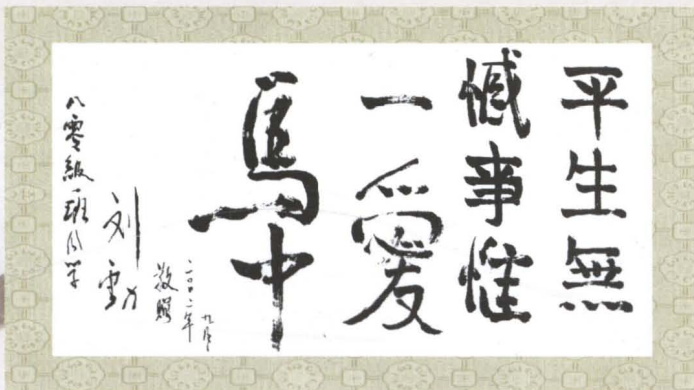 平生無
憾事惟
一愛
馬中
二〇〇二年九月
敬贈
刘勤
八零級一班同学